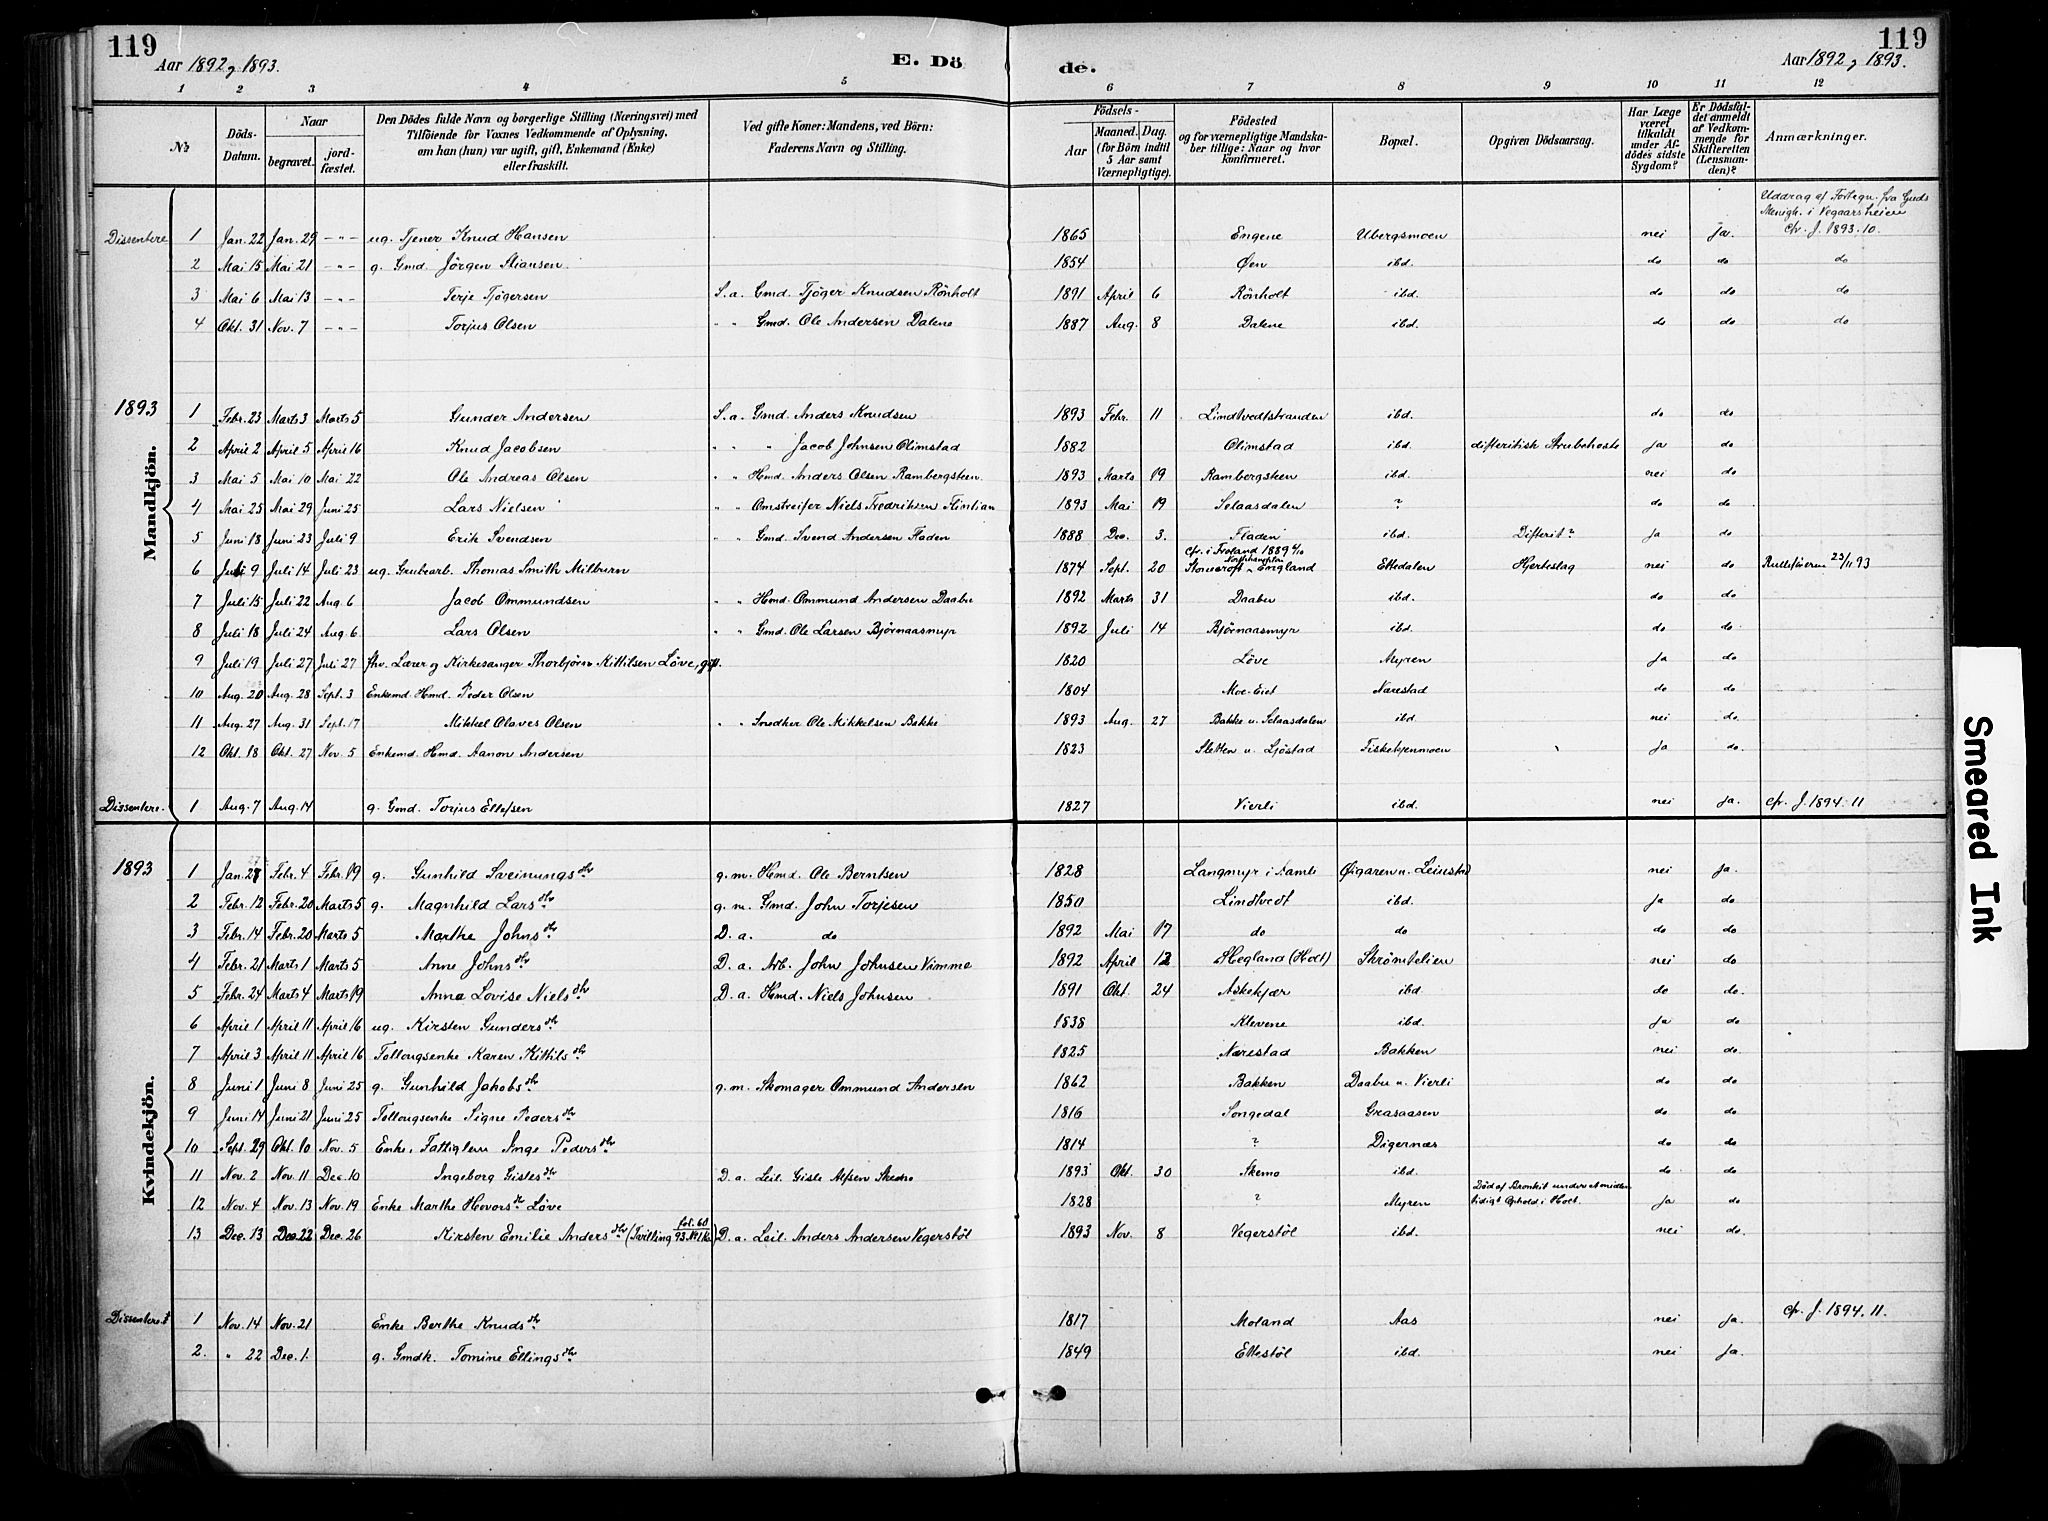 119
Aar 1892 og 1893.
E. Dö
de.
Aar 1892 og 1893.
119
1 2 3 4 5 6 7 8 9 10 11 12
№
Döds-Datum.
Naar
begravet.
jord-fæstet.
Den Dödes fulde Navn og borgerlige Stilling (Næringsvei) med
Tilföiende for Voxnes Vedkommende af Oplysning,
om han (hun) var ugift, gift, Enkemand (Enke)
eller fraskilt.
Ved gifte Koner: Mandens, ved Börn:
Faderens Navn og Stilling.
Födsels-
Aar
Maaned. Dag.
(for Börn indtil
5 Aar samt
Værnepligtige).
Födested
og for værnepligtige Mandska-
ber tillige: Naar og hvor
konfirmeret.
Bopæl.
Opgiven Dödsaarsag.
Har Læge
været
tilkaldt
under Af-
dödes sidste
Sygdom?
Er Dödsfal-
det anmeldt
af Vedkom-
mende for
Skifteretten
(Lensman-
den)?
Anmærkninger.
Uddrag af Fortegn. fra Guds
Menigh. i Vegaarsheien
Dissentere 1 Jan. 22 Jan. 29 -"- ug. Tjener Knud Hansen 1865 Engene Ubergsmoen nei ja. cfr. J. 1893. 10.
2 Mai 15 Mai 21 -"- g. Gmd. Jörgen Stiansen. 1854 Øen ibd. do do do
3 Mai 6 Mai 13 -"- Terje Tjögersen S. a. Gmd. Tjöger Knudsen Rönholt 1891 April 6 Rönholt ibd. do do do
4 Okt. 31 Nov. 7 -"- Torjus Olsen " " Gmd. Ole Andersen Dalene 1887 Aug. 8 Dalene ibd. do do do
Mandkjön.
1893 1 Febr. 23 Marts 3 Marts 5 Gunder Andersen S. a. Gmd. Anders Knudsen 1893 Febr. 11 Lindtvedtstranden ibd. do do
2 April 2 April 5 April 16 Knud Jacobsen " " " Jacob Johnsen Olimstad 1882 Olimstad ibd. difteritisk Strubehoste ja do
3 Mai 5 Mai 10 Mai 22 Ole Andreas Olsen " " Hmd. Anders Olsen Rambergsteen. 1893 Marts 19 Rambergsteen ibd. nei do
4 Mai 25 Mai 29 Juni 25 Lars Nielsen " " Omstreifer Niels Fredriksen 1893 Mai 19 Selaasdalen ? do do
5 Juni 18 Juni 23 Juli 9 Erik Svendsen " " Gmd. Svend Andersen Fladen 1888 Dec. 3. Fladen ibd. Difterit? ja do
cfr. i Froland 1889 4/10
6 Juli 9 Juli 14 Juli 23 ug. Grubearb. Thomas Smith Milburn 1874 Sept. 20 Stonecroft England Ettedalen Hjerteslag nei do 23/11 93
7 Juli 15 Juli 22 Aug. 6 Jacob Ommundsen " " Hmd. Ommund Andersen Daabu 1892 Marts 31 Daabu ibd. do do
8 Juli 18 Juli 24 Aug. 6 Lars Olsen " " Gmd. Ole Larsen Björnaasmyr 1892 Juli 14 Björnaasmyr ibd. do do
9 Juli 19 Juli 27 Juli 27 fhv. Lærer og Kirkesanger Thorbjörn Kittilsen Löve, gift. 1820 Löve Myren ja do
10 Aug. 20 Aug. 28 Sept. 3 Enkemd. Hmd. Peder Olsen 1804 Moe-Eiet Narestad do do
11 Aug. 27 Aug. 31 Sept. 17 Mikkel Olaves Olsen " " Snedker Ole Mikkelsen Bakke 1893 Aug. 27 Bakke u. Selaasdalen ibd. nei do.
12 Okt. 18 Okt. 27 Nov. 5 Enkemd. Hmd. Aanon Andersen 1823 Sletten u. Ljöstad Fisketjenmoen ja do.
Dissentere. 1 Aug. 7 Aug. 14 g. Gmd. Torjus Ellefsen 1827 Vierli ibd. nei ja. cfr. J. 1894. 11
Kvindekjön.
1893 1 Jan. 27 Febr. 4 Febr. 19 g. Gunhild Sveinungsdtr g. m. Hmd. Ole Berntsen 1828 Langmyr i Aamli Øigaren u. Leiustad nei ja.
2 Febr. 12 Febr. 20 Marts 5 g. Magnhild Larsdtr g. m. Gmd. John Torjesen 1850 Lindtvedt ibd. ja do
3 Febr. 14 Febr. 20 Marts 5 Marthe Johnsdtr D. a. do 1892 Mai 17 do do do do
4 Febr. 21 Marts 1 Marts 5 Anne Johnsdtr D. a. Arb. John Johnsen Vimme 1892 April 12 Hegland (Holt) Strömtelien nei do
5 Febr. 24 Marts 4 Marts 19 Anna Lovise Nielsdtr D. a. Hmd. Niels Johnsen 1891 Okt. 24 Askekjær ibd. do do.
6 April 1 April 11 April 16 ug. Kirsten Gundersdtr 1838 Klevene ibd. ja do
7 April 3 April 11 April 16 Follougsenke Karen Kittilsdtr 1825 Nærestad Bakken nei do.
8 Juni 1 Juni 8 Juni 25 g. Gunhild Jakobsdtr g. m. Skomager Ommund Andersen 1862 Bakken Daabu u. Vierli do do
9 Juni 14 Juni 21 Juni 25 Follougsenke Signe Pedersdtr 1816 Songedal Grasaasen do do
10 Sept. 29 Okt. 10 Nov. 5 Enke, Fattiglem Inge Pedersdtr 1814 ? Digernæs do do
11 Nov. 2 Nov. 11 Dec. 10 Ingeborg Gislesdtr D. a. Leil. Gisle Alfsen Skemo 1893 Okt. 30 Skemo ibd. do do
12 Nov. 4 Nov. 13 Nov. 19 Enke Marthe Hovorsdtr Löve 1828 ? Myren Död af Bronkit under et midler-
tidigt Ophold i Holt. ja do
13 Dec. 13 Dec. 22 Dec. 26 Kirsten Emilie Andersdtr (Tvilling fol. 60 93 №1 Kv.) D. a. Leil. Anders Andersen Vegerstöl 1893 Nov. 8 Vegerstöl ibd. nei do.
Dissentere 1 Nov. 14 Nov. 21 Enke Berthe Knudsdtr 1817 Moland Aas nei ja. cfr. J. 1894. 11.
2. " 22 Dec. 1. g. Gmdk. Tomine Ellingsdtr 1849 Ettestöl ibd. nei ja.
Smeared Ink